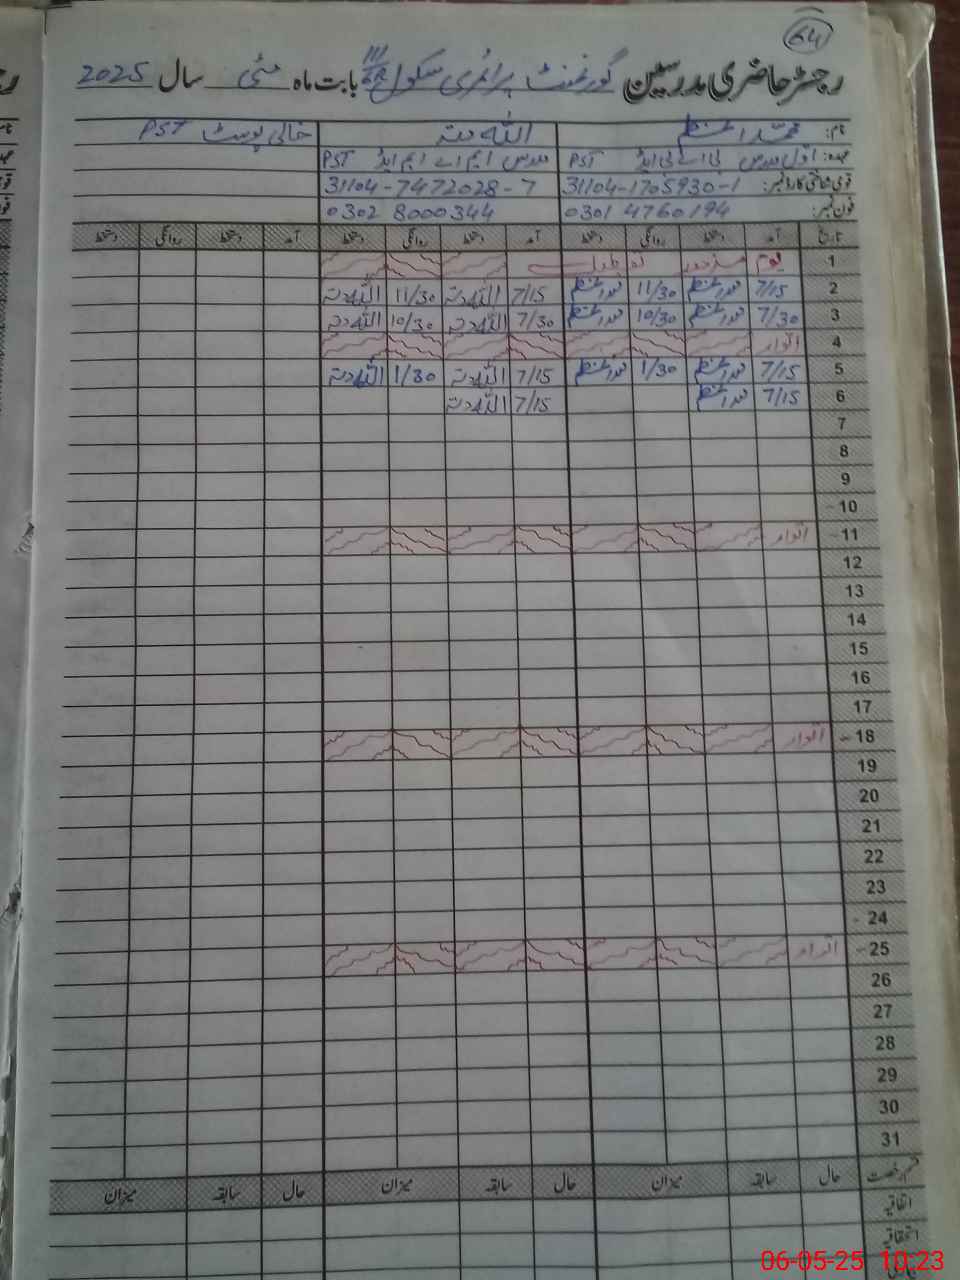 64
رجسٹر حاضری مدرسین گورنمنٹ پرائمری سکول بابت ماہ مئی سال 2025
نام: محمد اعظم اللہ دتہ خالی پوسٹ PST
عہدہ: اول مدرس بی اے بی ایڈ PST مدرس ایم اے ایم ایڈ PST
قومی شناختی کارڈ نمبر: 31104-1705930-1 31104-7472028-7
فون نمبر: 0301 4760194 0302 8000344
تاریخ آمد دستخط روانگی دستخط آمد دستخط روانگی دستخط آمد دستخط روانگی دستخط
1 یوم مزدور تعطیل
2 7/15 محمد اعظم 11/30 محمد اعظم 7/15 اللہ دتہ 11/30 اللہ دتہ
3 7/30 محمد اعظم 10/30 محمد اعظم 7/30 اللہ دتہ 10/30 اللہ دتہ
4 اتوار
5 7/15 محمد اعظم 1/30 محمد اعظم 7/15 اللہ دتہ 1/30 اللہ دتہ
6 7/15 محمد اعظم 7/15 اللہ دتہ
7
8
9
10
11 اتوار
12
13
14
15
16
17
18 اتوار
19
20
21
22
23
24
25 اتوار
26
27
28
29
30
31
قسم رخصت حال سابقہ میزان حال سابقہ میزان حال سابقہ میزان
اتفاقیہ
استحقاقیہ
06-05-25 10:23